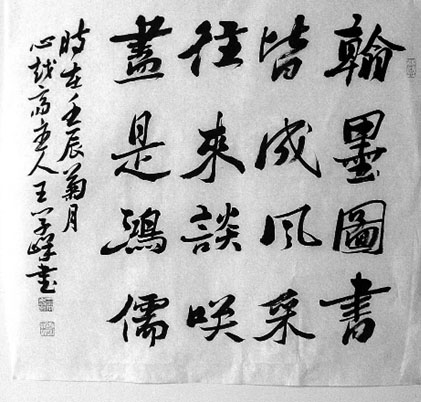 翰墨圖書
皆成風采
往來談咲
盡是鴻儒
時在壬辰菊月
心越齋主人王學峰書